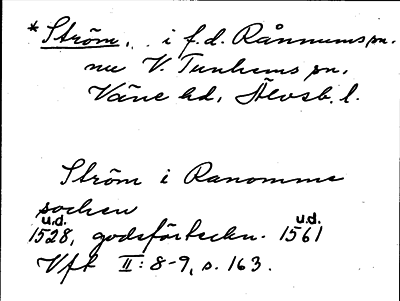 * Ström, . i f.d. Rånnums sn.
nu V. Tunhems sn,
Väne hd, Älvsb. l.
Ström i Ranomme
sochen
u.d. u.d.
1528, godsförteckn. 1561
Vft II: 8-9, s. 163.